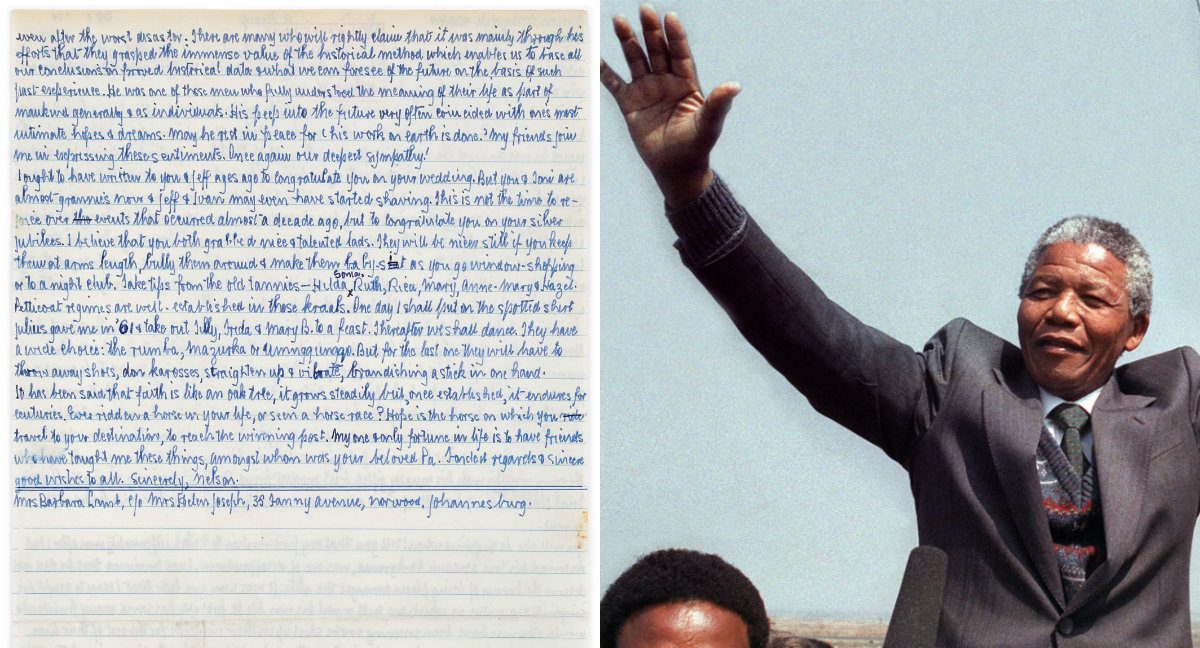 even after the worst disaster. There are many who will rightly claim that it was mainly through his
efforts that they grasped the immense value of the historical method which enables us to base all
our conclusions on proved historical data & what we can foresee of the future on the basis of such
past experience. He was one of those men who fully understood the meaning of their life as part of
mankind generally & as individuals. His peep into the future very often coincided with ones most
intimate hopes & dreams. May he rest in peace for 'his work on earth is done.' My friends join
me in expressing these sentiments. Once again our deepest sympathy!
I ought to have written to you & Jeff ages ago to congratulate you on your wedding. But you & Toni are
almost grannies now & Jeff & Ivan may even have started shaving. This is not the time to re-
over the events that occurred almost a decade ago, but to congratulate you on your silver
jubilees. I believe that you both grabbed nice & talented lads. They will be nicer still if you keep
them at arms length, bully them around & make them baby-sit as you go window-shopping
or to a night club. Take tips from the old tannies – Hilda, Sonia, Ruth, Rica, Mary, Anne-Mary & Hazel.
Petticoat regimes are well-established in those kraals. One day I shall put on the spotted shirt
Julius gave me in '61 & take out Tilly, Freda & Mary B. to a feast. Thereafter we shall dance. They have
a wide choice: the rumba, mazurka or Umngqungqo. But for the last one they will have to
throw away shoes, don karosses, straighten up & vibrate, brandishing a stick in one hand.
It has been said that faith is like an oak tree, it grows steadily but, once established, it endures for
centuries. Ever ridden a horse in your life, or seen a horse race? Hope is the horse on which you
travel to your destination, to reach the winning post. My one & only fortune in life is to have friends
who have taught me these things, amongst whom was your beloved Pa. Fondest regards & sincere
good wishes to all. Sincerely, Nelson.
Mrs Barbara Lamb, c/o Mrs Helen Joseph, 35 Fanny avenue, Norwood, Johannesburg.